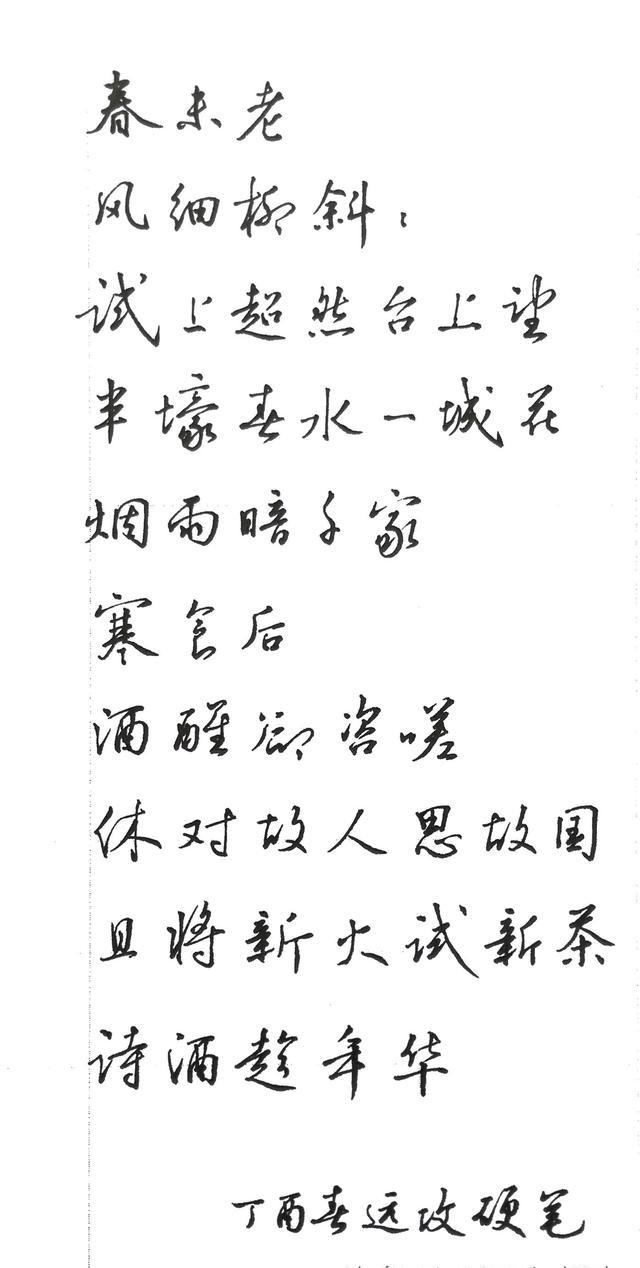 春未老
风细柳斜斜
试上超然台上望
半壕春水一城花
烟雨暗千家
寒食后
酒醒却咨嗟
休对故人思故国
且将新火试新茶
诗酒趁年华
丁酉春远攻硬笔